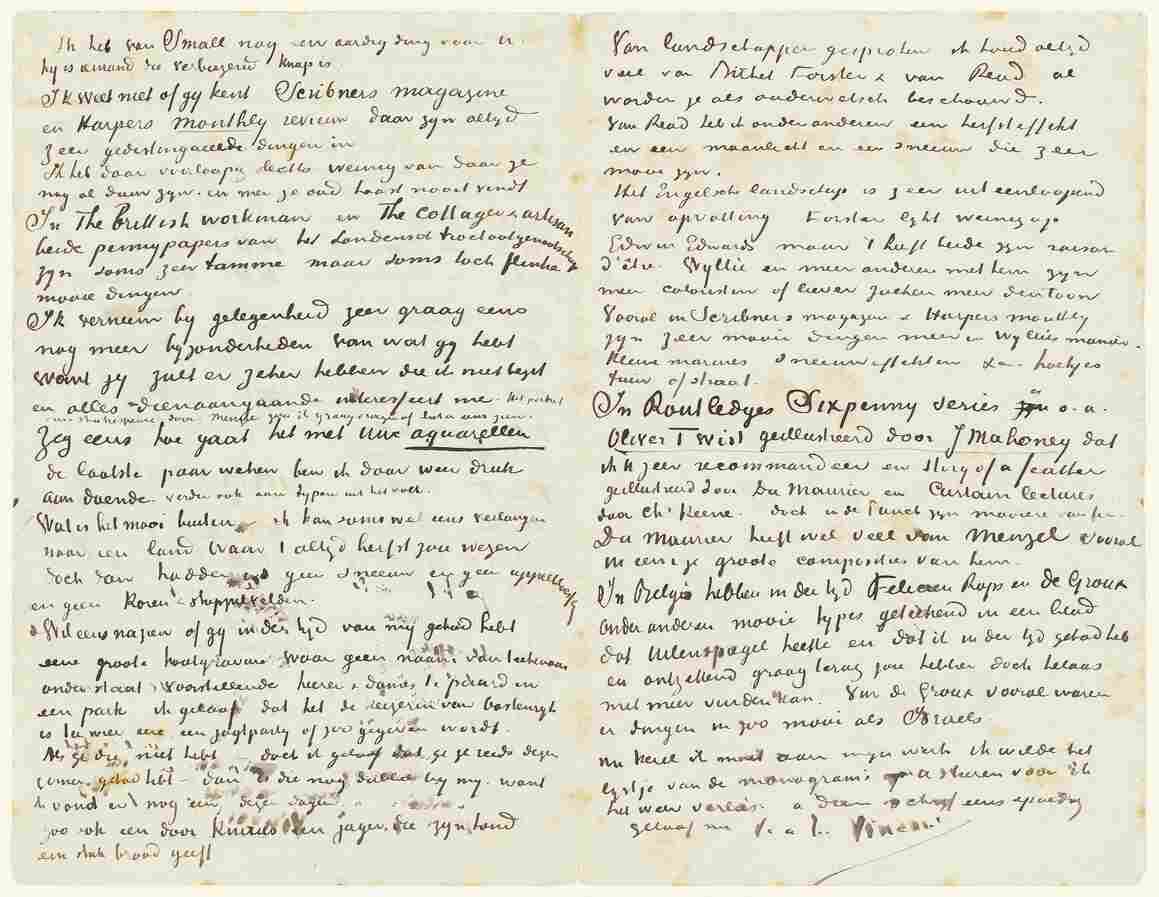 Ik heb van Small nog een aardig ding voor U.
hij is iemand die verbazend knap is.
Ik weet niet of gy kent Scribners magazine
en Harpers monthley review daar zyn altyd
zeer gedistingueerde dingen in
Ik heb daar voorloopig slechts weinig van daar ze
nog al duur zyn en men ze oud haast nooit vindt
In The Brittish workman en The Cottager & artisan
beide pennypapers van het Londensch tractaatgenootschap
zyn soms zeer tamme maar soms toch flinke
mooie dingen
Ik verneem by gelegenheid zeer graag eens
nog meer byzonderheden van wat gy hebt
want gy zult er zeker hebben die ik niet bezit
en alles dienaangaande interesseert me. Het portret
van Shakespeare door Menzel zou ik graag vroeg of laat eens zien.
Zeg eens hoe gaat het met Uwe aquarellen
de laatste paar weken ben ik daar weer druk
aan doende. verder ook aan typen uit het volk.
Wat is het mooi buiten ik kan soms wel eens verlangen
naar een land waar 't altyd herfst zou wezen
doch dan hadden we geen sneeuw en geen appelbloesem
en geen koren & stoppelvelden.
Wil eens nazien of gy in der tyd van my gehad hebt
eene groote houtgravure waar geen naam van teekenaar
onder staat voorstellende heeren & dames te paard in
een park ik geloof dat het de keizerin van Oostenryk
is ter wier eere een jagtparty of zoo gegeven wordt.
Als ge die niet hebt doch ik geloof dat ge ze reeds dezen
zomer gehad hebt - dan is die nog dubbel by my. want
ik vond er nog een dezer dagen
zoo ook een door Knaus een jager die zyn hond
een stuk brood geeft
Van landschappen gesproken ik houd altyd
veel van Birket Forster & van Read al
worden ze als ouderwetsch beschouwd.
Van Read heb ik onder anderen een herfsteffekt
en een maanlicht en een sneeuw die zeer
mooi zyn.
Het Engelsche landschap is zeer uiteenloopend
van opvatting Forster lykt weinig op
Edwin Edwards maar 't heeft beide zyn raison
d'être. Wyllie en meer anderen met hem zyn
meer coloristen of liever zoeken meer den toon
Vooral in Scribners magazine & Harpers monthley
zyn zeer mooie dingen meer in Wyllies manier.
kleine marines sneeuweffekten & hoekjes
tuin of straat.
In Routledges Sixpenny series zyn o.a.
Oliver Twist geillustreerd door J Mahoney dat
ik U zeer recommandeer en story of a feather
geillustreerd door Du Maurier en Curtain lectures
door Ch' Keene. doch in de Punch zyn
Du Maurier heeft wel veel van Menzel vooral
in eenige groote composities van hem.
In België hebben in der tyd Felicien Rops en de Groux
onder anderen mooie types geteekend in een blad
dat Uilenspiegel heette en dat ik in der tyd gehad heb
en ontzettend graag terug zou hebben doch helaas
niet meer vinden kan. Van de Groux vooral waren
er dingen in zoo mooi als Israels
nu kerel ik moet aan myn werk ik wilde het
lystje van de monogram's U sturen voor ik
het weer verlies. à dieu schryf eens spoedig
geloof me t. à t. Vincent